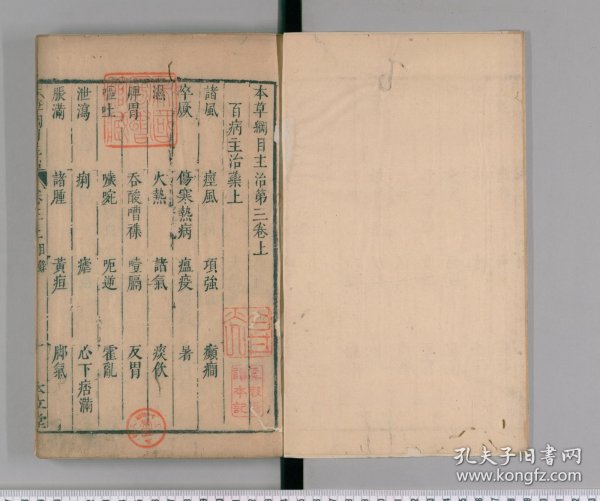 本草綱目主治第三卷上
百病主治藥上
諸風 痙風 項強 癲癇
卒厥 傷寒熱病 瘟疫 暑
濕 火熱 諸氣 痰飲
脾胃 吞酸嘈襍 噎膈 反胃
嘔吐 噦啘 呃逆 霍亂
泄瀉 痢 瘧 心下痞滿
脹滿 諸腫 黃疸 脚氣
本立堂
孔夫子旧书网
www.kongfz.com